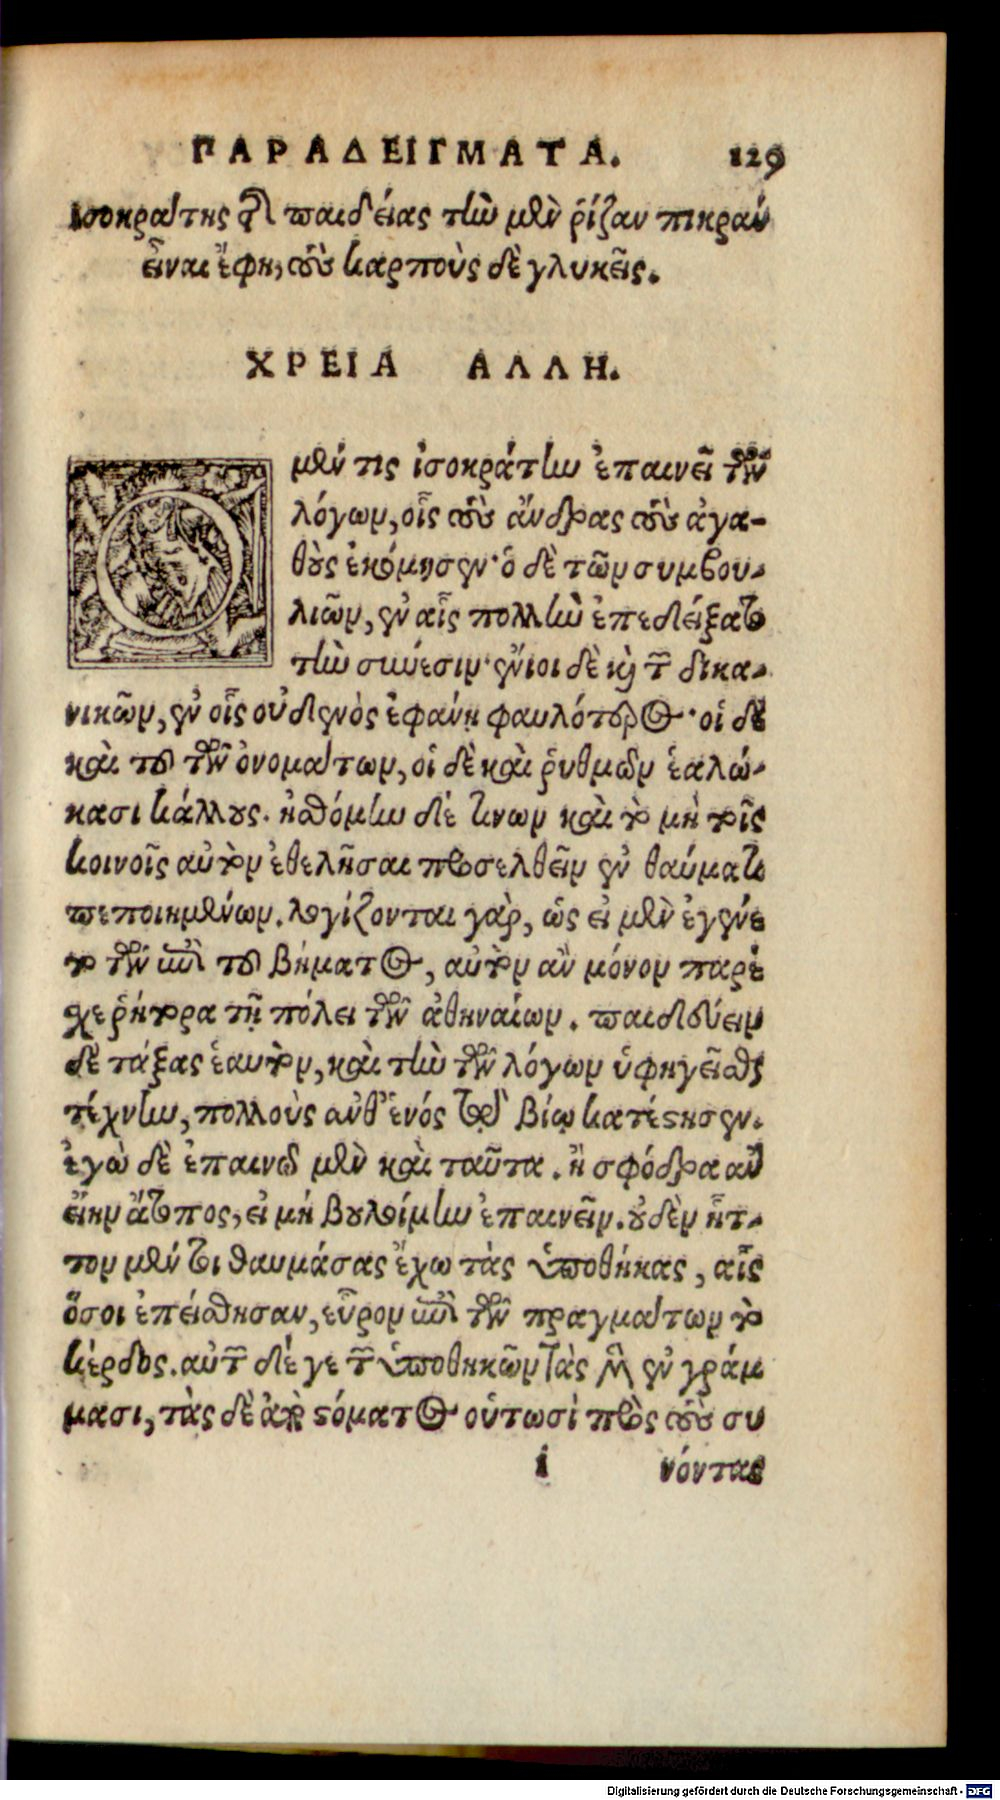 ΠΑΡΑΔΕΙΓΜΑΤΑ. 129
ἰσοκράτης τῆς παιδείας τὴν μὲν ῥίζαν πικρὰν
εἶναι ἔφη, τοὺς καρποὺς δὲ γλυκεῖς.
ΧΡΕΙΑ ΑΛΛΗ.
Ο μέν τις ἰσοκράτην ἐπαινεῖ τῶν
λόγων, οἷς τοὺς ἄνδρας τοὺς ἀγα-
θοὺς ἐκόμησεν· ὁ δὲ τῶν συμβου-
λιῶν, ἐν αἷς πολλὴν ἐπεδείξατο
τὴν σύνεσιν· ἔνιοι δὲ καὶ τῶν δικα-
νικῶν, ἐν οἷς οὐδενὸς ἐφάνη φαυλότερος· οἱ δὲ
καὶ του τῶν ὀνομάτων, οἱ δὲ καὶ ῥυθμῶν ἑαλώ-
κασι κάλλους. ᾐσθόμην δέ τινων καὶ τὸ μὴ τοῖς
κοινοῖς αὐτὸν ἐθελῆσαι προσελθεῖν ἐν θαύματι
πεποιημένων. λογίζονται γάρ, ὡς εἰ μὲν ἐγένε
το τῶν ἐπὶ τοῦ βήματος, αὐτὸν ἂν μόνον παρέ
χε ῥήτορα τῇ πόλει τῶν ἀθηναίων. παιδεύειν
δὲ τάξας ἑαυτὸν, καὶ τὴν τῶν λόγων ὑφηγεῖσθαι
τέχνην, πολλοὺς ἀνθ' ἑνός τῷ βίῳ κατέστησεν.
ἐγὼ δὲ ἐπαινῶ μὲν καὶ ταῦτα. ἢ σφόδρα ἂν
εἴην ἄτοπος, εἰ μή βουλοίμην ἐπαινεῖν. οὐδὲν ἧτ-
τον μέν τοι θαυμάσας ἔχω τὰς ὑποθήκας, αἷς
ὅσοι ἐπείσθησαν, εὗρον ἐπὶ τῶν πραγμάτων τὸ
κέρδος. αὐτῶν δέ γε τῶν ὑποθηκῶν τὰς μὲν ἐν γράμ
μασι, τὰς δὲ ἀπὸ στόματος οὑτωσὶ πρὸς τοὺς συ
i νόντας
Digitalisierung gefördert durch die Deutsche Forschungsgemeinschaft - DFG